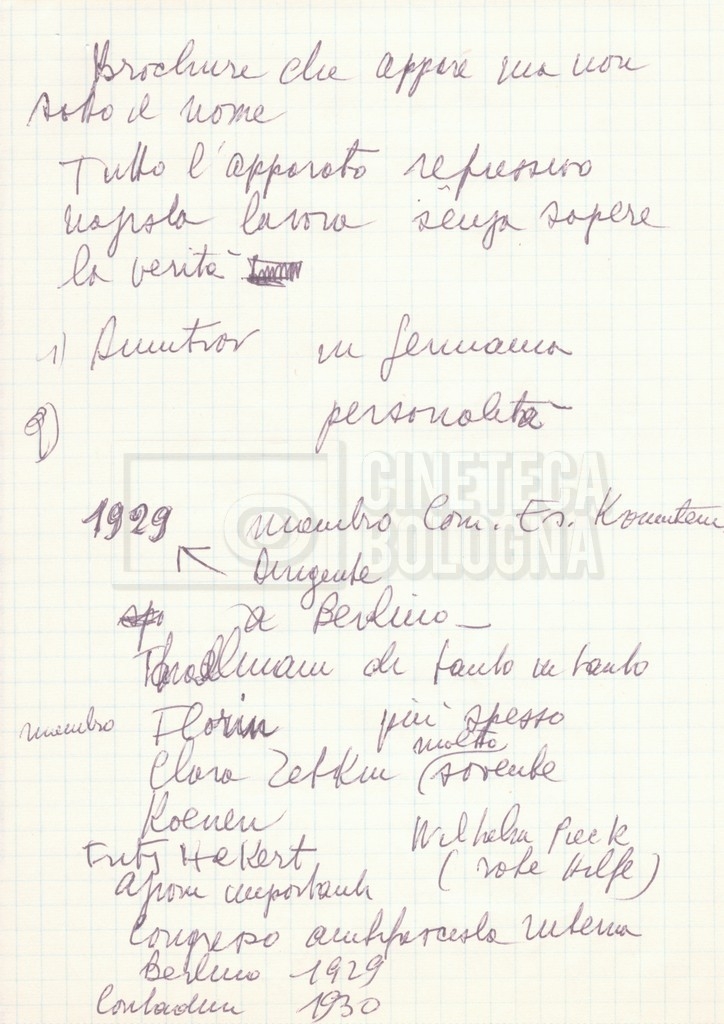 Brochure che appare ma non
sotto il nome
Tutto l'apparato repressivo
lavora senza sapere
la verità
1) Dimitrov in Germania
2)
personalità
CINETECA
BOLOGNA
1929 membro Com. Es. Komintern
dirigente
a Berlino
Thaelmann di tanto in tanto
membro Florin più spesso
molto
Clara Zetkin (sovente
Koenen
Wilhelm Pieck
Fritz Hekert
(rote Hilfe)
importanti
Congresso antifascista interna
Berlino 1929
Contadini 1930